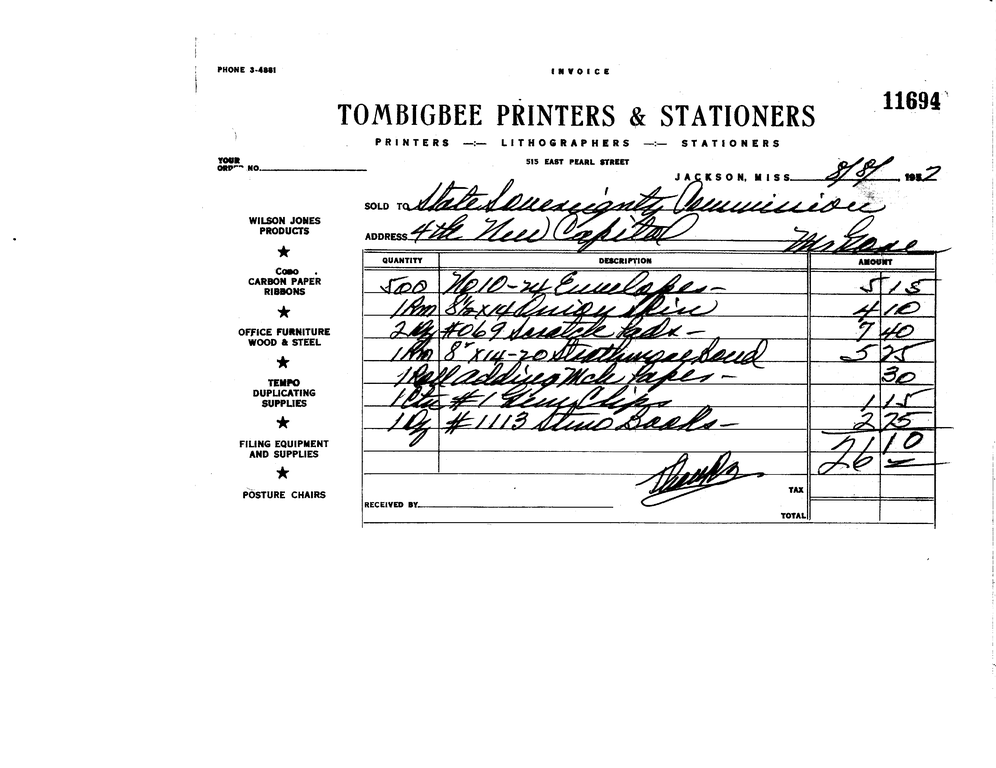 PHONE 3-4881
INVOICE
11694
TOMBIGBEE PRINTERS & STATIONERS
PRINTERS —:— LITHOGRAPHERS —:— STATIONERS
515 EAST PEARL STREET
YOUR
ORDER NO.
JACKSON, MISS. 8/8/, 1957
SOLD TO State Sovereignty Commission
ADDRESS 4th New Capitol
Mr Gore
WILSON JONES
PRODUCTS
★
COBO
CARBON PAPER
RIBBONS
★
OFFICE FURNITURE
WOOD & STEEL
★
TEMPO
DUPLICATING
SUPPLIES
★
FILING EQUIPMENT
AND SUPPLIES
★
POSTURE CHAIRS
QUANTITY DESCRIPTION AMOUNT
500 No 10-24 Envelopes — 5 15
1 Rm 8½x14 Onion Skin 4 10
2 Dz #069 Scratch Pads — 7 40
1 Rm 8½x14-20 Strathmore Bond 5 25
1 Roll Adding Mch Paper — 30
1 Ctn #1 Gem Clips 1 15
1 Dz #1113 Steno Books — 2 75
26 10
TAX
RECEIVED BY
TOTAL